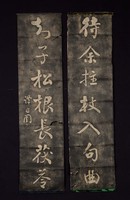 待余拄杖入句曲
知子松根長茯苓